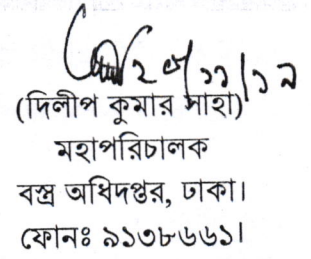 ২৫/১১/১৯
(দিলীপ কুমার সাহা)
মহাপরিচালক
বস্ত্র অধিদপ্তর, ঢাকা।
ফোনঃ ৯১৩৮৬৬১।